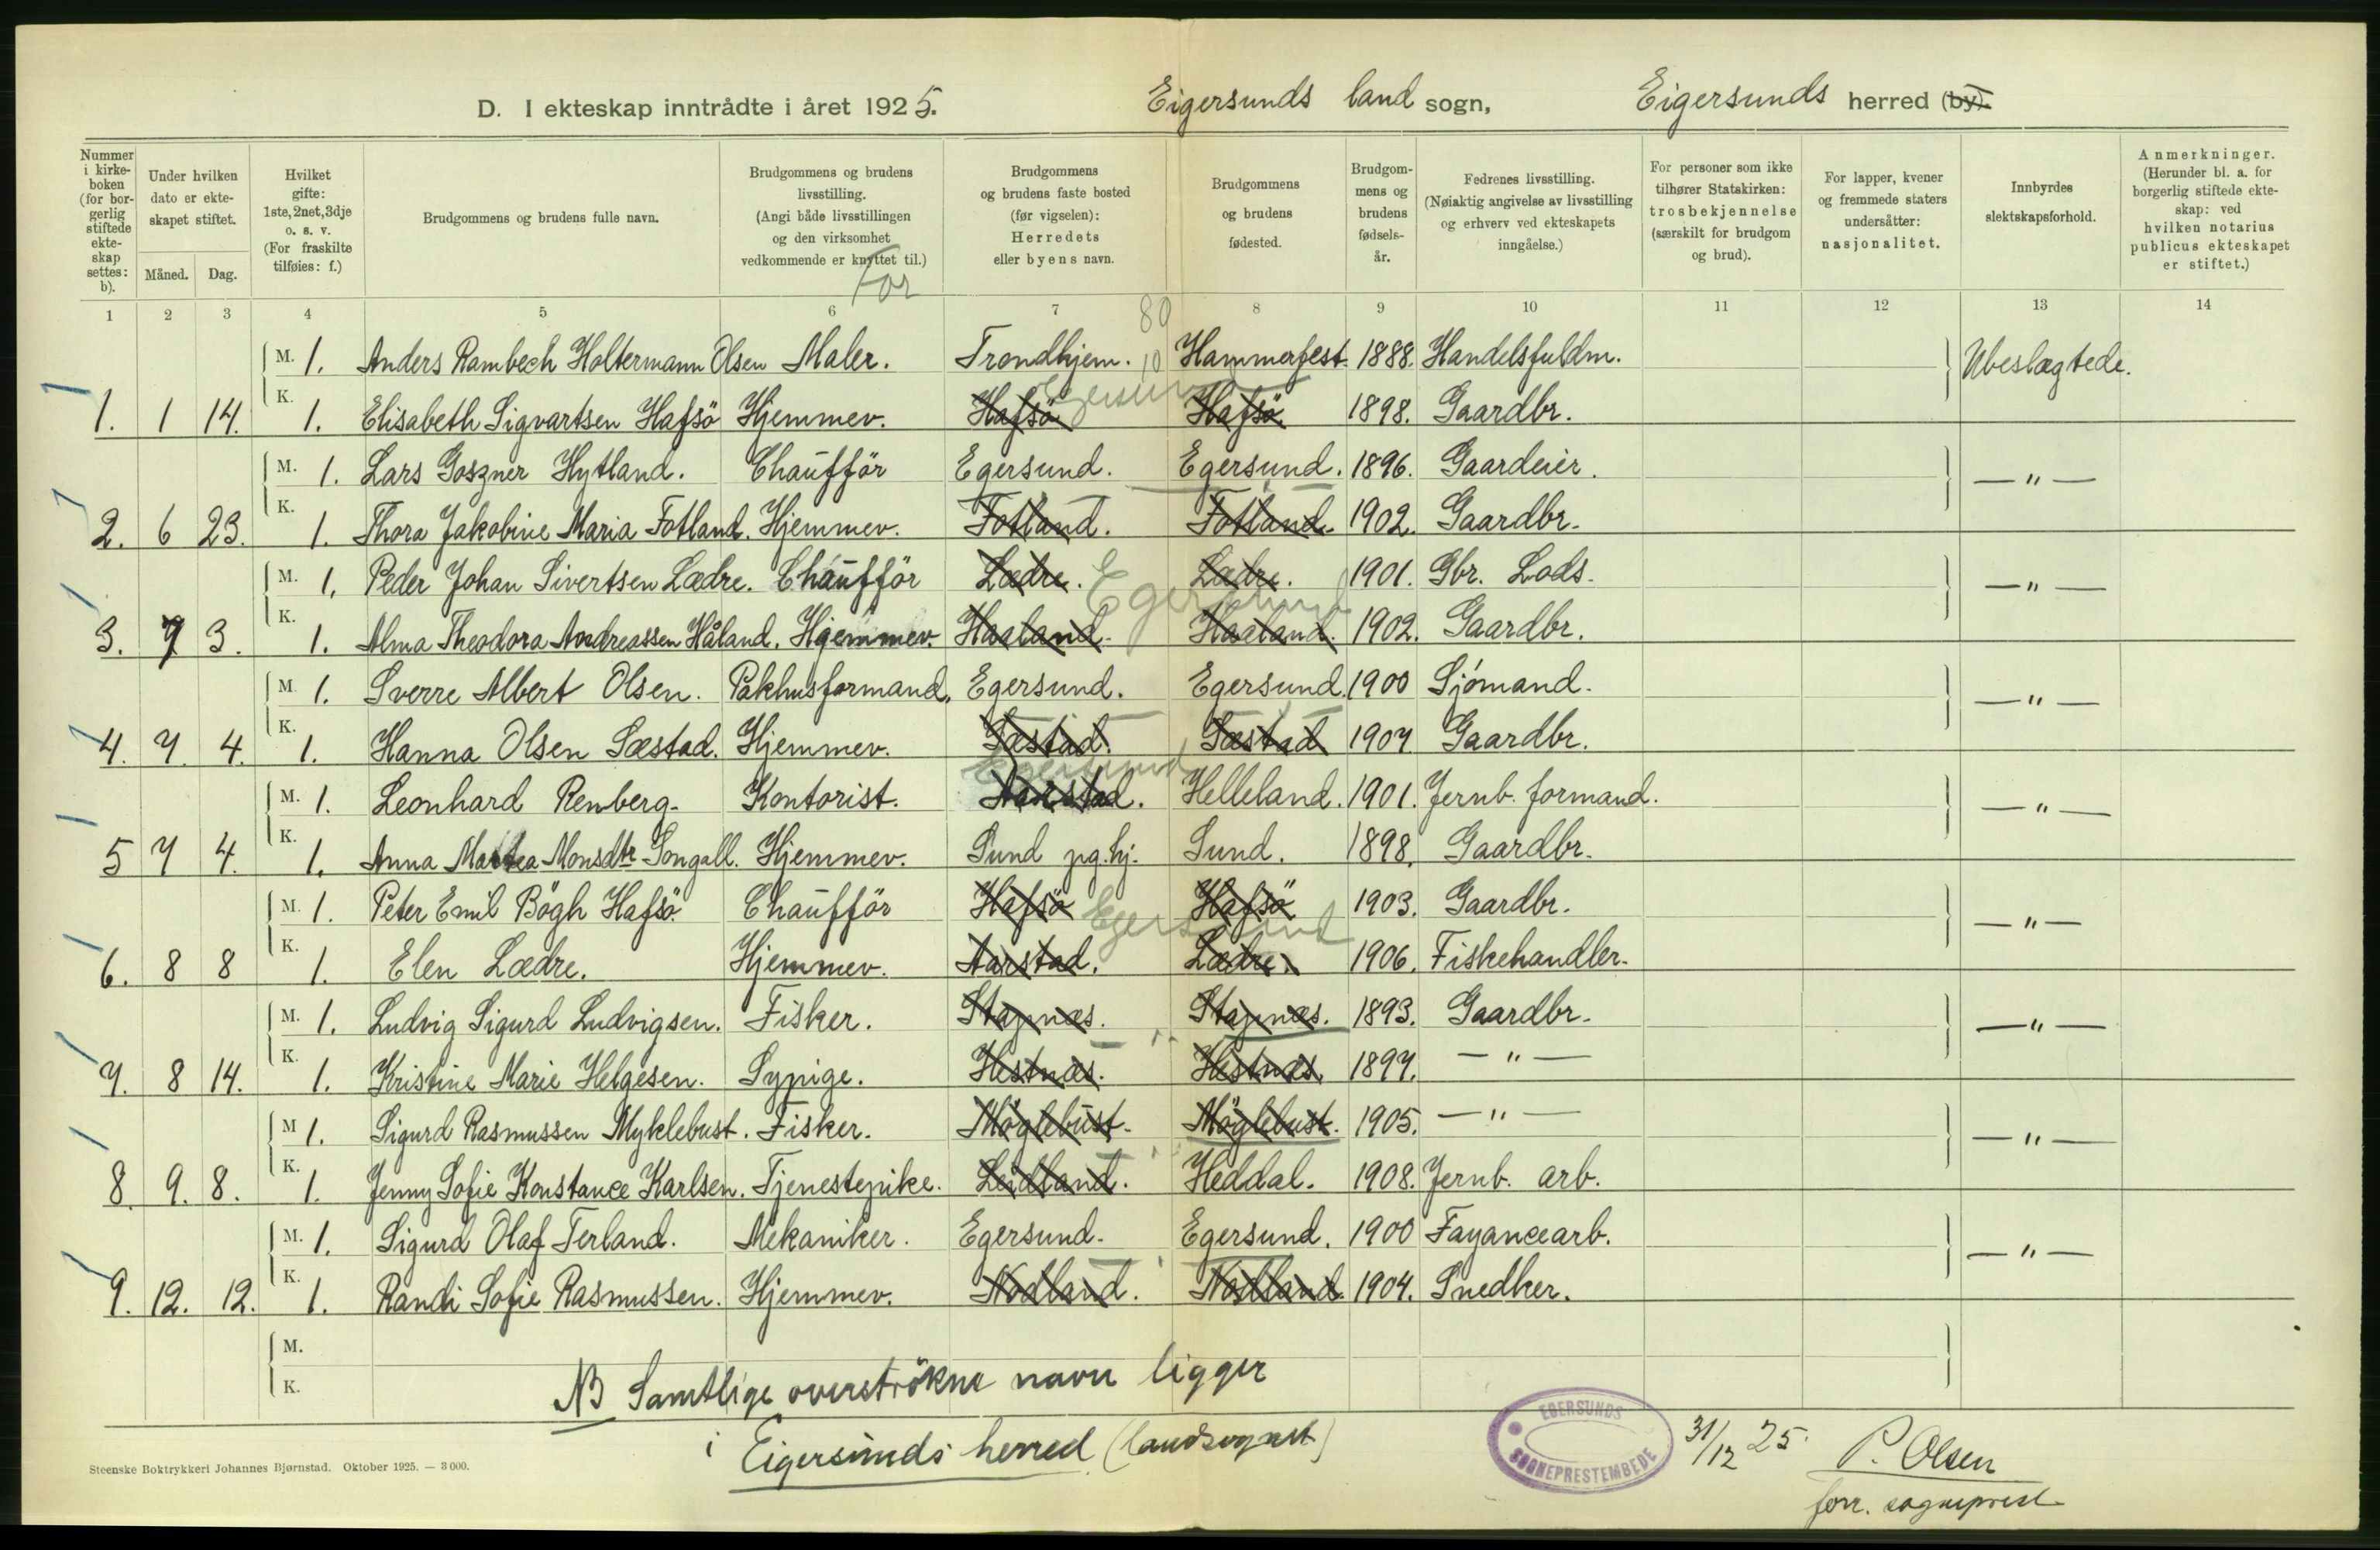 D. I ekteskap inntrådte i året 1925. Eigersunds land sogn, Eigersunds herred (by).
Nummer i kirkeboken (for borgerlig stiftede ekteskap settes: b).
Under hvilken dato er ekteskapet stiftet.
Måned. Dag.
Hvilket gifte: 1ste, 2net, 3dje o. s. v. (For fraskilte tilføies: f.)
Brudgommens og brudens fulle navn.
Brudgommens og brudens livsstilling. (Angi både livsstillingen og den virksomhet vedkommende er knyttet til.)
Brudgommens og brudens faste bosted (før vigselen): Herredets eller byens navn.
Brudgommens og brudens fødested.
Brudgommens og brudens fødselsår.
Fedrenes livsstilling. (Nøiaktig angivelse av livsstilling og erhverv ved ekteskapets inngåelse.)
For personer som ikke tilhører Statskirken: trosbekjennelse (særskilt for brudgom og brud).
For lapper, kvener og fremmede staters undersåtter: nasjonalitet.
Innbyrdes slektskapsforhold.
Anmerkninger. (Herunder bl. a. for borgerlig stiftede ekteskap: ved hvilken notarius publicus ekteskapet er stiftet.)
1 2 3 4 5 6 7 8 9 10 11 12 13 14
80
M. 1. Anders Rambech Holtermann Olsen Maler. Trondhjem. 10 Hammerfest. 1888. Handelsfuldm. Ubeslægtede.
Egersund
1. 1 14. K. 1. Elisabeth Sigvartsen Hafsö Hjemmev. Hafsö Hafsö 1898. Gaardbr.
M. 1. Lars Goszner Hytland. Chaufför Egersund. Egersund. 1896. Gaardeier. — " —
2. 6 23. K. 1. Thora Jakobine Maria Fotland. Hjemmev. Fotland. Fotland. 1902. Gaardbr.
M. 1. Peder Johan Sivertsen Lædre. Chaufför Lædre. Lædre. 1901. Gbr. Lods. — " —
Egersund
3. 7 3. K. 1. Alma Theodora Andreassen Håland. Hjemmev. Haaland. Haaland. 1902. Gaardbr.
M. 1. Sverre Albert Olsen. Pakhusformand. Egersund. Egersund. 1900 Sjömand. — " —
4. 7. 4. K. 1. Hanna Olsen Sæstad. Hjemmev. Sæstad. Sæstad 1907 Gaardbr.
Egersund
M. 1. Leonhard Renberg. Kontorist. Aarstad. Helleland. 1901. Jernb. formand. — " —
5 7 4. K. 1. Anna Martea Monsdtr Songall. Hjemmev. Sund pg.hj. Sund. 1898. Gaardbr.
M. 1. Peter Emil Bögh Hafsö. Chaufför Hafsö Hafsö 1903. Gaardbr. — " —
Egersund
6. 8 8 K. 1. Elen Lædre. Hjemmev. Aarstad. Lædre. 1906. Fiskehandler.
M. 1. Ludvig Sigurd Ludvigsen. Fisker. Stapnæs. Stapnæs. 1893. Gaardbr. — " —
7. 8 14. K. 1. Kristine Marie Helgesen. Sypige. Hestnæs. Hestnæs. 1897. — " —
M 1. Sigurd Rasmussen Myklebust. Fisker. Möglebust. Möglebust. 1905. — " — — " —
8. 9. 8. K. 1. Jenny Sofie Konstance Karlsen. Tjenestepike. Leidland. Heddal. 1908. Jernb. arb.
M. 1. Sigurd Olaf Terland. Mekaniker. Egersund. Egersund. 1900 Fayancearb. — " —
9. 12. 12. K. 1. Randi Sofie Rasmussen. Hjemmev. Nodland. Nodland. 1904. Snedker.
M.
K.
NB Samtlige overströkne navn ligger
i Eigersunds herred (landsognet)
EGERSUNDS SOGNEPRESTEMBEDE
31/12 25. P. Olsen
forr. sogneprest
Steenske Boktrykkeri Johannes Bjørnstad. Oktober 1925. — 3000.